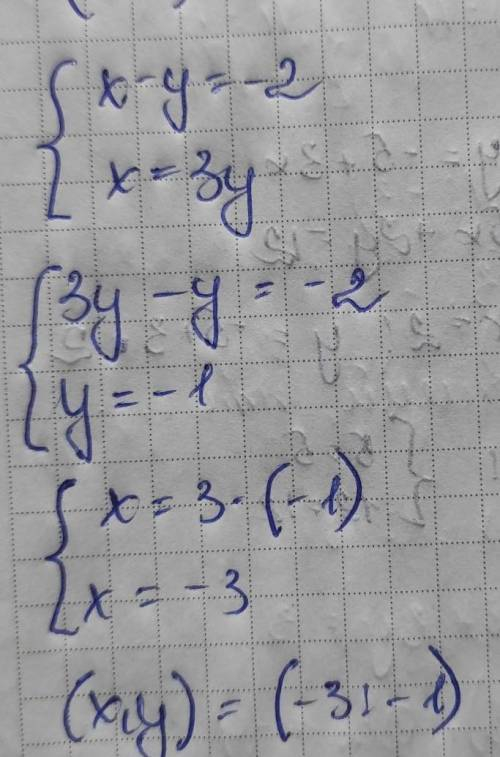 x - y = -2
x = 3y
3y - y = -2
y = -1
x = 3 · (-1)
x = -3
(x,y) = (-3; -1)